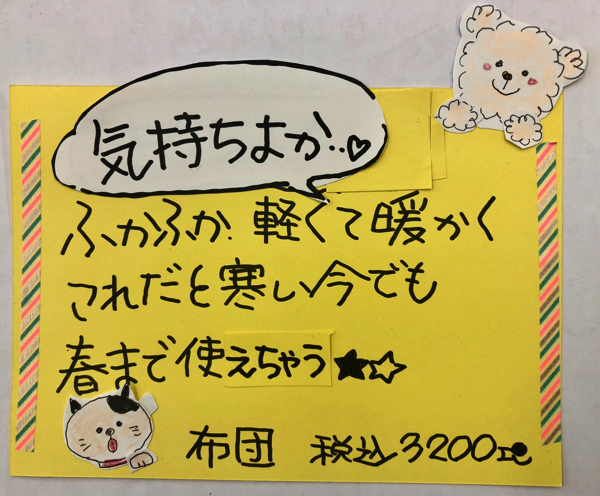 気持ちよか..♡
ふかふか.軽くて暖かく
これだと寒い今でも
春まで使えちゃう★☆
布団 税込3200円